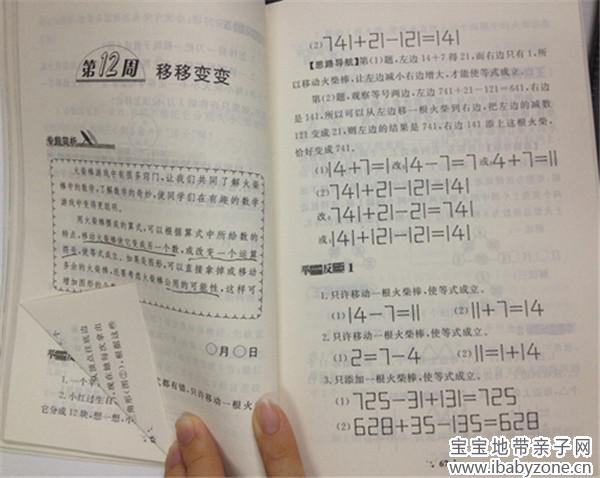 第12周 移移变变
专题简析
火柴棒游戏中有很多窍门,让我们共同了解火柴
棒中的数学,了解数学的奇妙,使同学们在有趣的数学
游戏中变得更聪明。
用火柴棒摆成的算式,可以根据算式中所给数的
特点,移动火柴棒使它变成另一个数,或改变一个运算
符号,使等式成立。如果是图形,可以直接拿掉或移动
多余的火柴棒,还要考虑火柴棒公用的可能性,这样可
增加图形的个
○月○日
1.一个
2.小红过生日
它分成12块,想一想,小
式都有错,只许移动一根火
(2)741+21-121=141
【思路导航】第(1)题,左边14+7得21,而右边只有1,所
以移动火柴棒,让左边减小右边增大,才能使等式成立。
第(2)题,观察等号两边,左边741+21-121=641,右边
是141,所以可以从左边移一根火柴到右边,把左边的减数
121变成21,则左边的结果是741,右边141添上这根火柴,
恰好变成741。
(1)14+7=1改:14-7=7或:4+7=11
(2)741+21-121=141
改:741+21-21=741
或:141+121-121=141
举一反三 1
1.只许移动一根火柴棒,使等式成立。
(1)14-7=11 (2)11+7=14
2.只许移动一根火柴棒,使等式成立。
(1)2=7-4 (2)11=1+14
3.只添加一根火柴棒,使等式成立。
(1)725-31+131=725
(2)628+35-135=628
67
宝宝地带亲子网
www.ibabyzone.cn